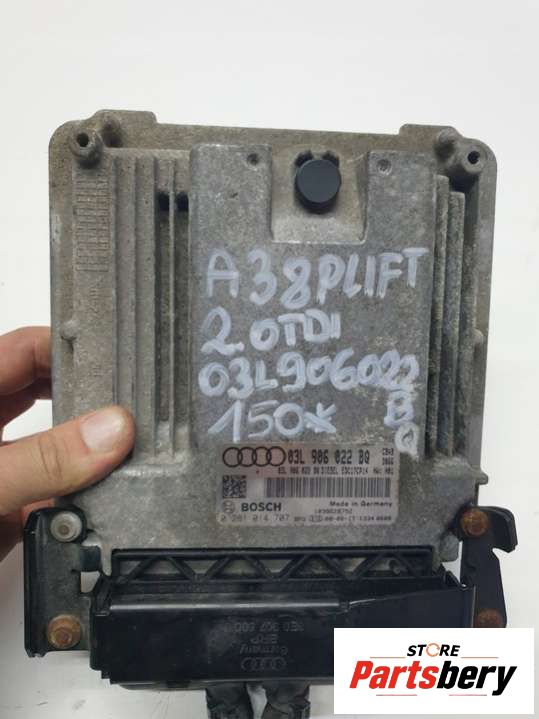 A38PLIFT
2.0TDI
03L906022
B
150K
Q
03L 906 022 BQ
03L 906 022 BQ DIESEL EDC17CP14
BOSCH
Made in Germany
0 281 014 707
1039S26752
Germany
STORE
Partsbery